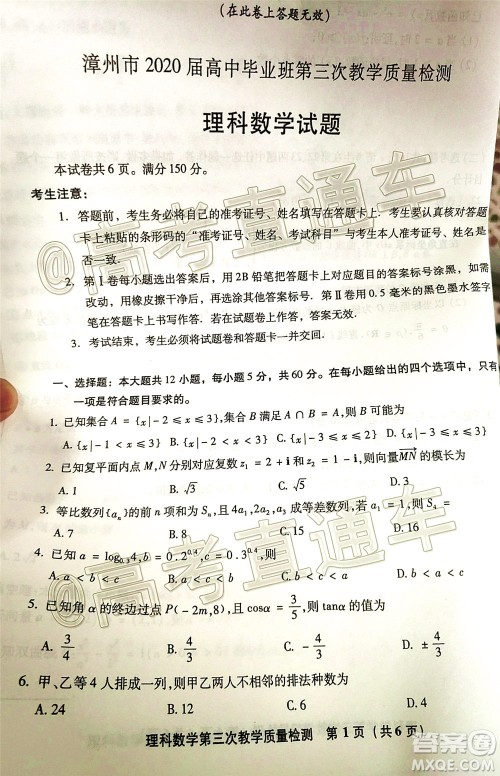 (在此卷上答题无效)
漳州市 2020 届高中毕业班第三次教学质量检测
理科数学试题
本试卷共 6 页。满分 150 分。
考生注意:
1. 答题前,考生务必将自己的准考证号、姓名填写在答题卡上。考生要认真核对答题
卡上粘贴的条形码的“准考证号、姓名、考试科目”与考生本人准考证号、姓名是
否一致.
2. 第Ⅰ卷每小题选出答案后,用 2B 铅笔把答题卡上对应题目的答案标号涂黑,如需
改动,用橡皮擦干净后,再选涂其它答案标号。第Ⅱ卷用 0.5 毫米的黑色墨水签字
笔在答题卡上书写作答,在试题卷上作答,答案无效.
3. 考试结束,考生必须将试题卷和答题卡一并交回.
一、选择题:本大题共 12 小题,每小题 5 分,共 60 分。在每小题给出的四个选项中,只有
一项是符合题目要求的.
1. 已知集合 A = {x | -2 ≤ x ≤ 3},集合 B 满足 A ∩ B = A,则 B 可能为
A. {x | -1 < x ≤ 3} B. {x | -2 < x < 3} C. {x | -2 ≤ x ≤ 2} D. {x | -3 ≤ x ≤ 3}
2. 已知复平面内点 M, N 分别对应复数 z₁ = 2 + i 和 z₂ = 1 - i,则向量MN 的模长为
A. 1 B. √3 C. √5 D. 3
3. 等比数列{aₙ}的前 n 项和为 Sₙ,若 a₁ = 1,且 4a₁, 2a₂, a₃ 成等差数列,则 S₄ =
A. 7 B. 8 C. 15 D. 16
4. 已知 a = log₀.₃4, b = 0.2^0.4, c = 0.3^0.4,则
A. a < b < c B. a < c < b C. c < b < a D. b < c < a
5. 已知角 α 的终边过点 P(-2m, 8),且 cosα = 3/5,则 tanα 的值为
A. 3/4 B. 4/3 C. -4/3 D. ±4/3
6. 甲、乙等 4 人排成一列,则甲乙两人不相邻的排法种数为
A. 24 B. 12 C. 6 D. 4
理科数学第三次教学质量检测 第 1 页 (共 6 页)
@高考直通车
@高考直通车
答案圈
MXQE.COM